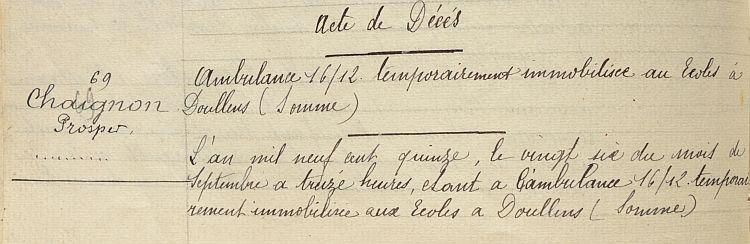 Acte de Décés
69
Chaignon
Prosper.
Ambulance 16/12 temporairement immobilisée au Ecoles à
Doullens (Somme)
L'an mil neuf cent quinze, le vingt six du mois de
Septembre a treize heures, etant a l'ambulance 16/12 temporai
rement immobilisee aux Ecoles a Doullens (Somme)